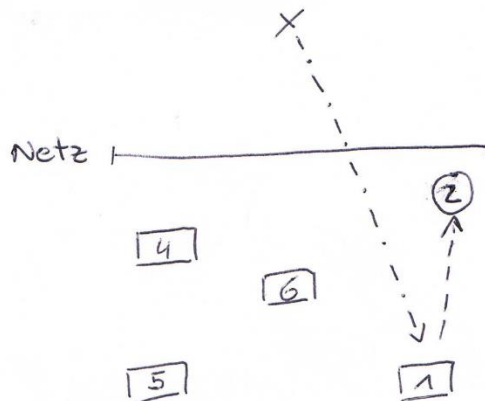 X
Netz
2
4
6
5
1